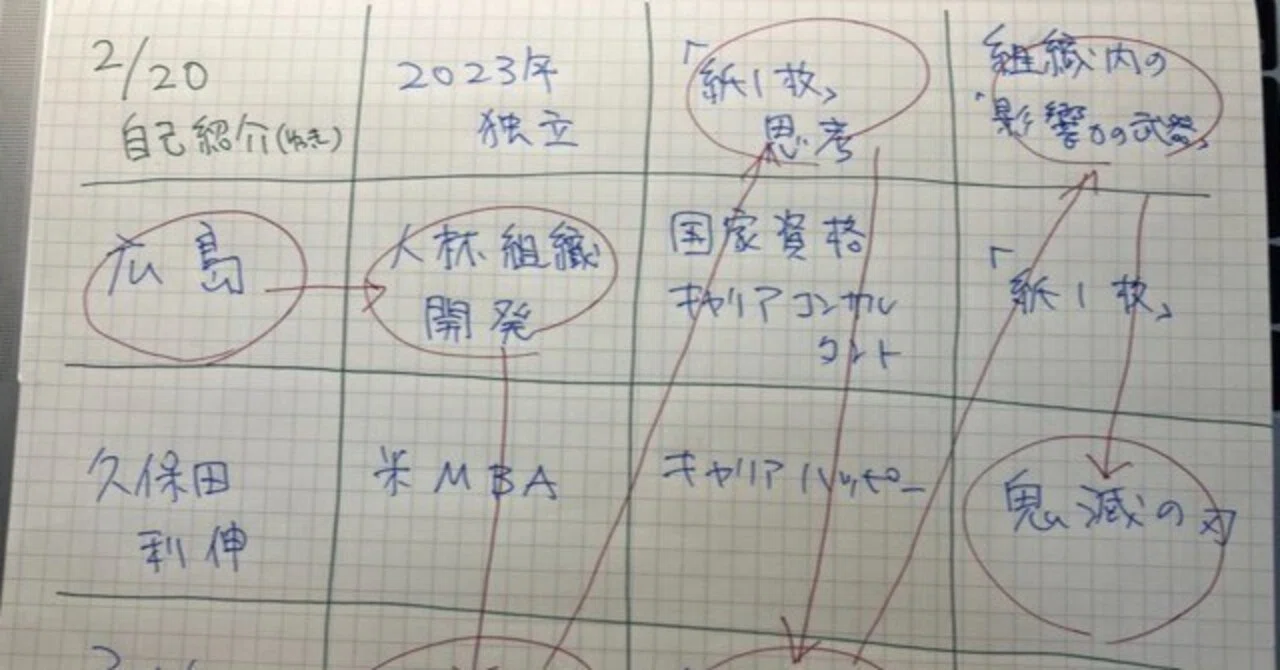 2/20
自己紹介
2023年
独立
「紙1枚」
思考
組織内の
「影響力の武器」
広島
大林組織
開発
国家資格
キャリアコンサル
タント
「紙1枚」
久保田
利伸
米MBA
キャリアハッピー
鬼滅の刃